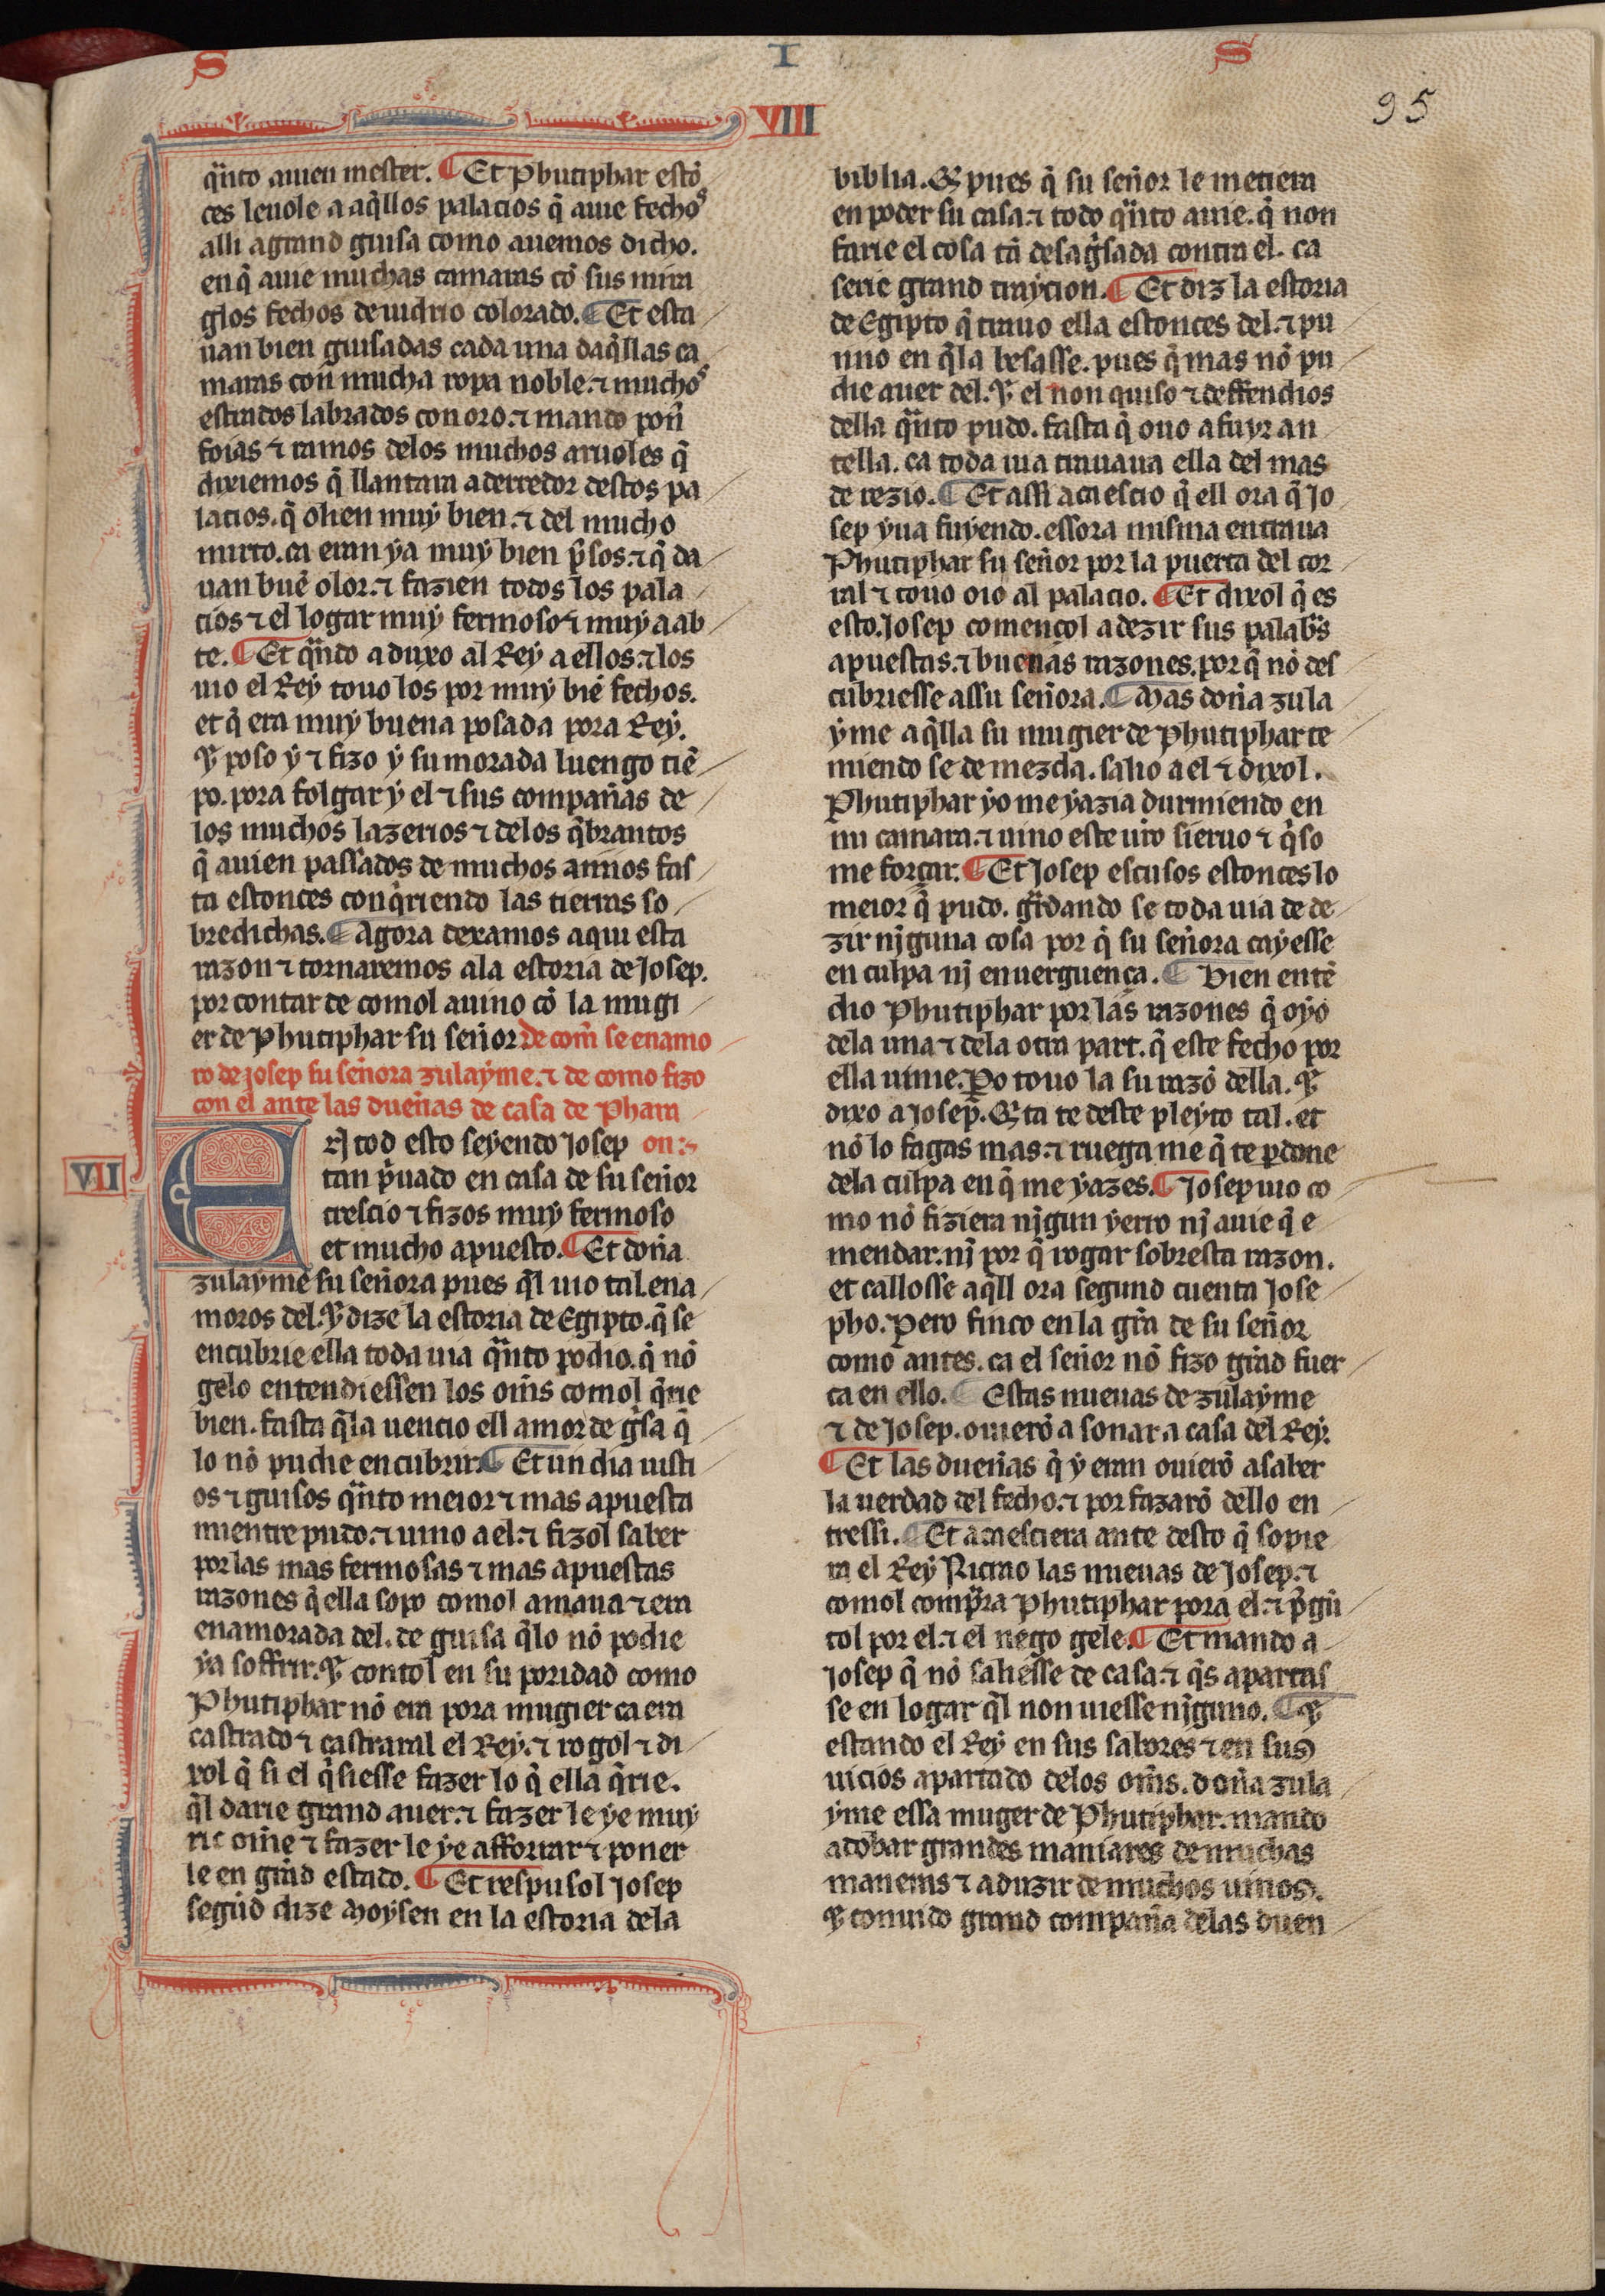 S I S
VIII
95
q̃nto auien mester. ¶ Et Phutiphar estõ
ces leuole a aq̃llos palacios q̃ auie fechos
alli a grand guisa como auemos dicho.
en q̃ auie muchas camaras cõ sus mira
glos fechos de uidrio colorado. ¶ Et esta
uan bien guisadas cada una daq̃llas ca
maras con mucha ropa noble. ⁊ muchos
estrados labrados con oro. ⁊ mando poñ
foias ⁊ ramos delos muchos aruoles q̃
dixiemos q̃ llantara a derredor destos pa
lacios. q̃ olien muy bien. ⁊ del mucho
mirto. ca eran ya muy bien p̃sos. ⁊ q̃ da
uan buẽ olor. ⁊ fazien todos los pala
cios ⁊ el logar muy fermoso ⁊ muy a ab
te. ¶ Et q̃ndo aduxo al Rey a ellos. ⁊ los
uio el Rey touo los por muy biẽ fechos.
et q̃ era muy buena posada pora Rey.
⁊ poso y ⁊ fizo y su morada luengo tiẽ
po. pora folgar y el ⁊ sus compañas de
los muchos lazerios ⁊ delos q̃brantos
q̃ auien passados de muchos annos fas
ta estonces conq̃riendo las tierras so
bredichas. ¶ Agora dexamos aqui esta
razon ⁊ tornaremos ala estoria de Josep.
por contar de comol auino cõ la mugi
er de Phutiphar su señor de com̃ se enamo
ro de josep su señora zulayme. ⁊ de como fizo
con el ante las dueñas de casa de Phara
VII
EN tod esto seyendo Josep on:
tan p̃uado en casa de su señor
crescio ⁊ fizos muy fermoso
et mucho apuesto. ¶ Et doña
zulayme su señora pues q̃l uio tal ena
moros del. ⁊ dize la estoria de Egipto. q̃ se
encubrie ella toda uia q̃nto podio. q̃ nõ
gelo entendiessen los om̃s comol q̃rie
bien. fasta q̃la uencio ell amor de g̃sa q̃
lo nõ pudie encubrir. ¶ Et un dia uisti
os ⁊ guisos q̃nto meior ⁊ mas apuesta
mientre pudo. ⁊ uino a el. ⁊ fizol saber
por las mas fermosas ⁊ mas apuestas
razones q̃ ella sopo comol amaua ⁊ era
enamorada del. de guisa q̃lo nõ podie
ya soffrir. ⁊ contol en su poridad como
Phutiphar nõ era pora mugier ca era
castrado ⁊ castraral el Rey. ⁊ rogol ⁊ di
xol q̃ si el q̃siesse fazer lo q̃ ella q̃rie.
q̃l darie grand auer. ⁊ fazer le ye muy
ric om̃e ⁊ fazer le ye afforrar ⁊ poner
le en grãd estado. ¶ Et respusol Josep
segũd dize Moysen en la estoria dela
biblia. Et pues q̃ su señor le metiera
en poder su casa. ⁊ todo q̃nto auie. q̃ non
farie el cosa tã desag̃sada contra el. ca
serie grand traycion. ¶ Et diz la estoria
de Egipto q̃ trauo ella estonces del. ⁊ pu
nno en q̃la besasse. pues q̃ mas nõ pu
die auer del. ⁊ el non quiso ⁊ deffendios
della q̃nto pudo. fasta q̃ ouo a fuyr an
tella. ca toda uia trauaua ella del mas
de rezio. ¶ Et assi acaescio q̃ ell ora q̃ Jo
sep yua fuyendo. essora misma entraua
Phutiphar su señor por la puerta del cor
ral ⁊ touo oio al palacio. ¶ Et dixol q̃ es
esto. Josep començol a dezir sus palab̃s
apuestas. ⁊ buenas razones. por q̃ nõ des
cubriesse assu señora. ¶ Mas doña zula
yme aq̃lla su mugier de Phutiphar te
miendo se de mezcla. salio a el ⁊ dixol.
Phutiphar yo me yazia durmiendo en
mi camara. ⁊ uino este uro sieruo ⁊ q̃so
me forçar. ¶ Et Josep escusos estonces lo
meior q̃ pudo. g̃rdando se toda uia de de
zir nĩguna cosa por q̃ su señora cayesse
en culpa nj en uerguença. ¶ Bien entẽ
dio Phutiphar por las razones q̃ oyo
dela una ⁊ dela otra part. q̃ este fecho por
ella uinie. Po touo la su razõ della. ⁊
dixo a Josep. Quita te deste pleyto tal. et
nõ lo fagas mas. ⁊ ruega me q̃ te pdone
dela culpa en q̃ me yazes. ¶ Josep uio co
mo nõ fiziera nj̃gun yerro nj auie q̃ e
mendar. nj por q̃ rogar sobresta razon.
et callosse aq̃ll ora segund cuenta Jose
pho. Pero finco en la gr̃a de su señor
como antes. ca el señor nõ fizo grãd fuer
ça en ello. ¶ Estas nueuas de zulayme
⁊ de Josep. ouierõ a sonar a casa del Rey.
¶ Et las dueñas q̃ y eran ouierõ a saber
la uerdad del fecho. ⁊ por fazarõ dello en
tressi. ¶ Et acaesciera ante desto q̃ sopie
ra el Rey Nicrao las nueuas de Josep. ⁊
comol comp̃ra Phutiphar pora el. ⁊ p̃gũ
tol por el. ⁊ el nego gele. ¶ Et mando a
Josep q̃ nõ saliesse de casa. ⁊ q̃s apartas
se en logar q̃l non uiesse nj̃guno. ¶ ⁊
estando el Rey en sus sabores ⁊ en sus
uicios apartado delos om̃s. doña zula
yme essa muger de Phutiphar. mando
adobar grandes maniares de muchas
maneras ⁊ aduzir de muchos uinos.
⁊ conuido grand compaña delas duen